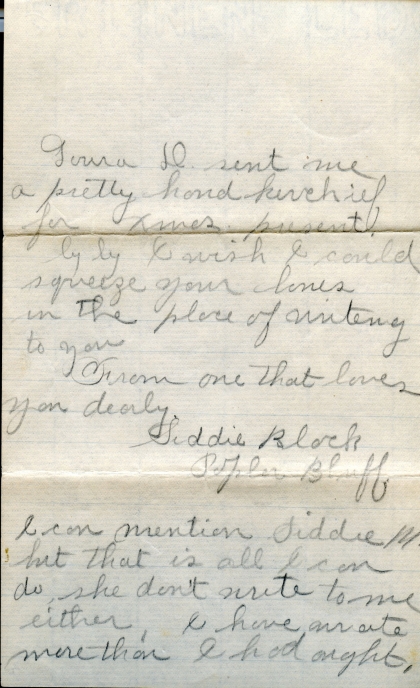 Loura D. sent me
a pretty hond kerchief
for Xmas. present.
by by I wish I could
squeeze your bones
in the place of writeng
to you
From one that loves
you dearly.
Siddie Block
Poplar Bluff
I can mention Siddie M
but that is all I can
do, she don't write to me
either, I have wroate
more than I had ought,